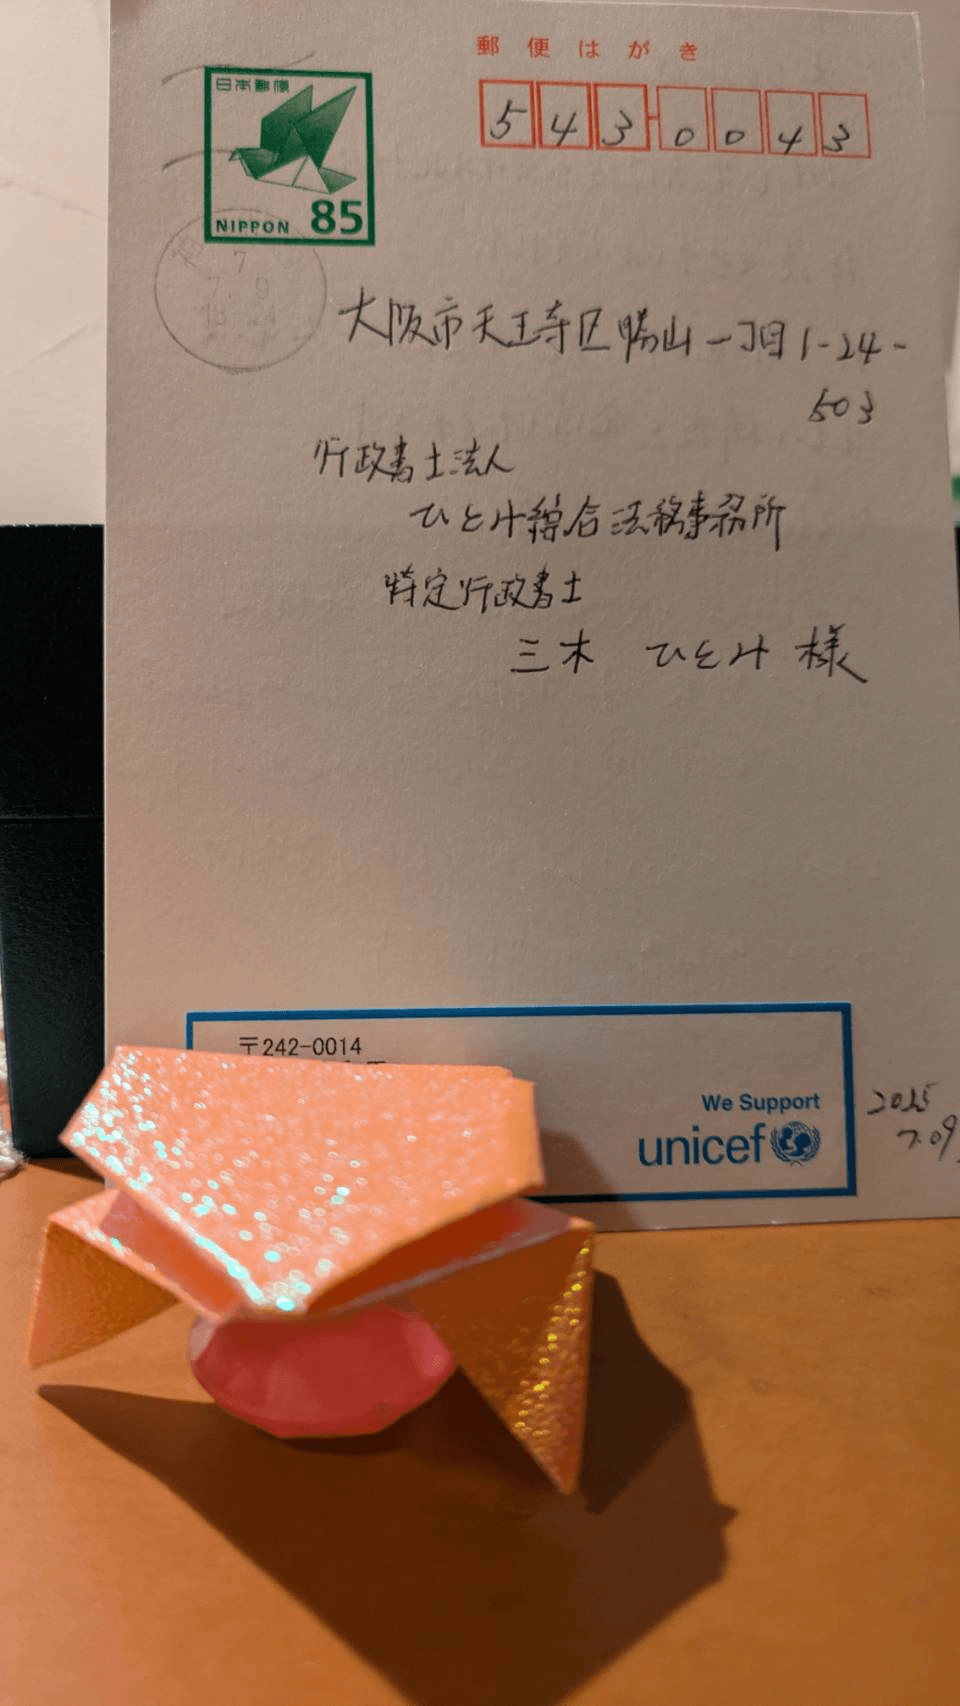 郵便はがき
日本郵便
NIPPON 85
5430043
7
7. 9
18-24
大阪市天王寺区勝山一丁目1-24-
503
行政書士法人
ひとみ綜合法務事務所
特定行政書士
三木 ひとみ 様
〒242-0014
We Support
unicef
2025
7.09